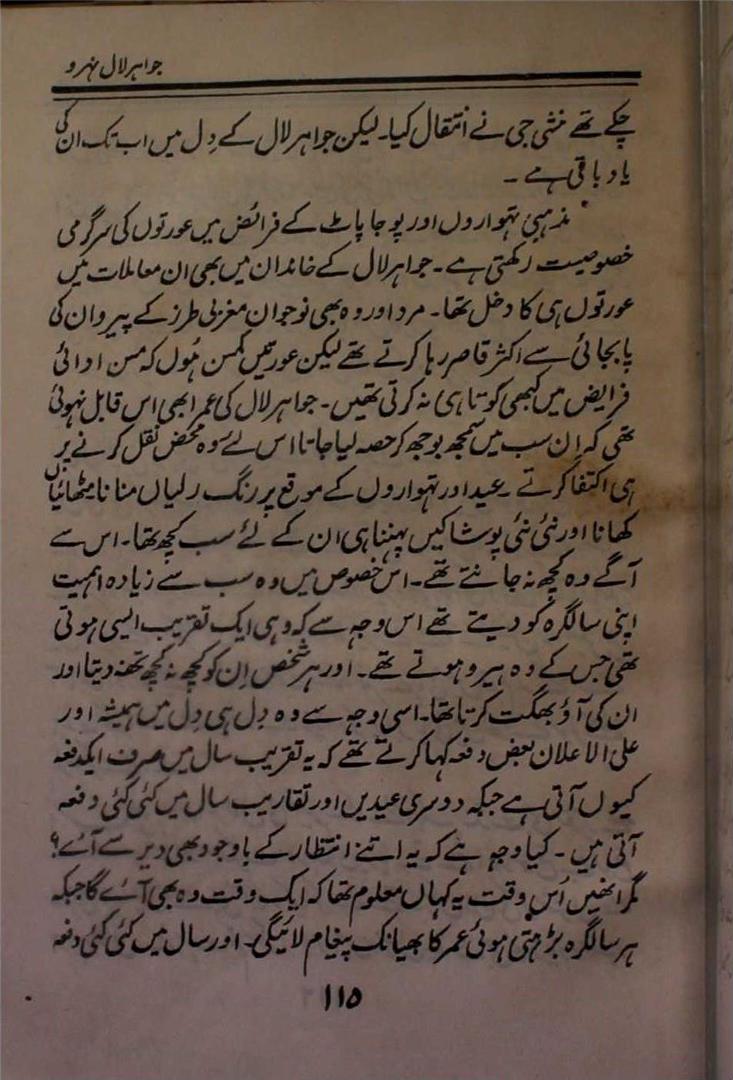 جواہر لال نہرو
چکے تھے منشی جی نے انتقال کیا۔ لیکن جواہر لال کے دِل میں اب تک ان کی
یاد باقی ہے۔
مذہبی تہواروں اور پوجا پاٹ کے فرائض میں عورتوں کی سرگرمی
خصوصیت رکھتی ہے۔ جواہر لال کے خاندان میں بھی ان معاملات میں
عورتوں ہی کا دخل تھا۔ مرد اور وہ بھی نوجوان مغربی طرز کے پیرو ان کی
پابجائی سے اکثر قاصر رہا کرتے تھے لیکن عورتیں کمسن ہُوں کہ مسن ادائی
فرایض میں کبھی کوتاہی نہ کرتی تھیں۔ جواہر لال کی عمر ابھی اس قابل نہوئی
تھی کہ اِن سب میں سمجھ بوجھ کر حصہ لیا جاتا اس لئے وہ محض نقل کرنے پر
ہی اکتفا کرتے ۔ عید اور تہواروں کے موقع پر رنگ رلیاں منانا مٹھائیاں
کھانا اور نئی نئی پوشاکیں پہننا ہی ان کے لئے سب کچھ تھا۔ اس سے
آگے وہ کچھ نہ جانتے تھے۔ اس خصوص میں وہ سب سے زیادہ اہمیت
اپنی سالگرہ کو دیتے تھے اس وجہ سے کہ وہی ایک تقریب ایسی ہوتی
تھی جس کے وہ ہیرو ہوتے تھے۔ اور ہر شخص اِن کو کچھ نہ کچھ تحفہ دیتا اور
ان کی آؤ بھگت کرتا تھا۔ اسی وجہ سے وہ دِل ہی دِل میں ہمیشہ اور
علی الاعلان بعض دفعہ کہا کرتے تھے کہ یہ تقریب سال میں صرف ایکدفعہ
کیوں آتی ہے جبکہ دوسری عیدیں اور تقاریب سال میں کئی کئی دفعہ
آتی ہیں۔ کیا وجہ ہے کہ یہ اتنے انتظار کے باوجود بھی دیر سے آئے؟
مگر انھیں اُس وقت یہ کہاں معلوم تھا کہ ایک وقت وہ بھی آئے گا جبکہ
ہر سالگرہ بڑھتی ہوئی عمر کا بھیانک پیغام لائیگی۔ اور سال میں کئی کئی دفعہ
۱۱۵